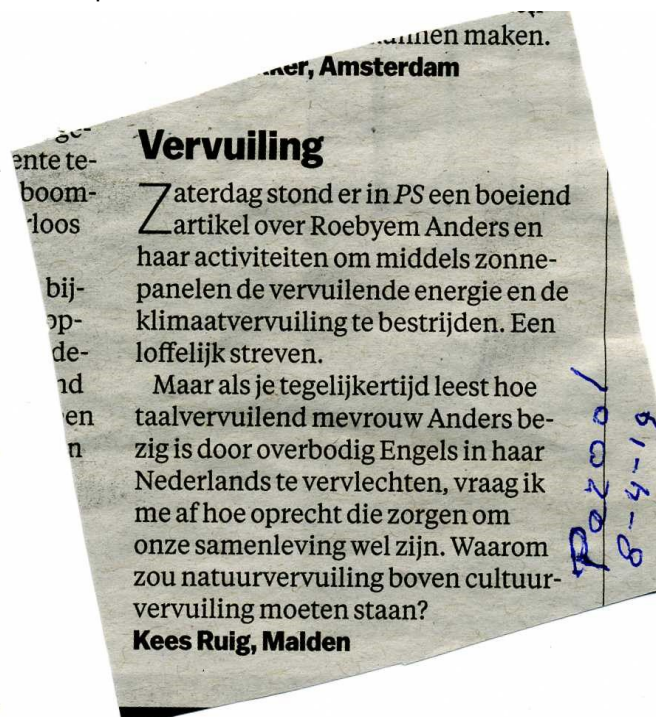 maken.
Amsterdam
ente te-
boom-
loos
bij-
op-
de-
nd
en
n
Vervuiling
Zaterdag stond er in PS een boeiend
artikel over Roebyem Anders en
haar activiteiten om middels zonne-
panelen de vervuilende energie en de
klimaatvervuiling te bestrijden. Een
loffelijk streven.
Maar als je tegelijkertijd leest hoe
taalvervuilend mevrouw Anders be-
zig is door overbodig Engels in haar
Nederlands te vervlechten, vraag ik
me af hoe oprecht die zorgen om
onze samenleving wel zijn. Waarom
zou natuurvervuiling boven cultuur-
vervuiling moeten staan?
Kees Ruig, Malden
Parool
8-4-19